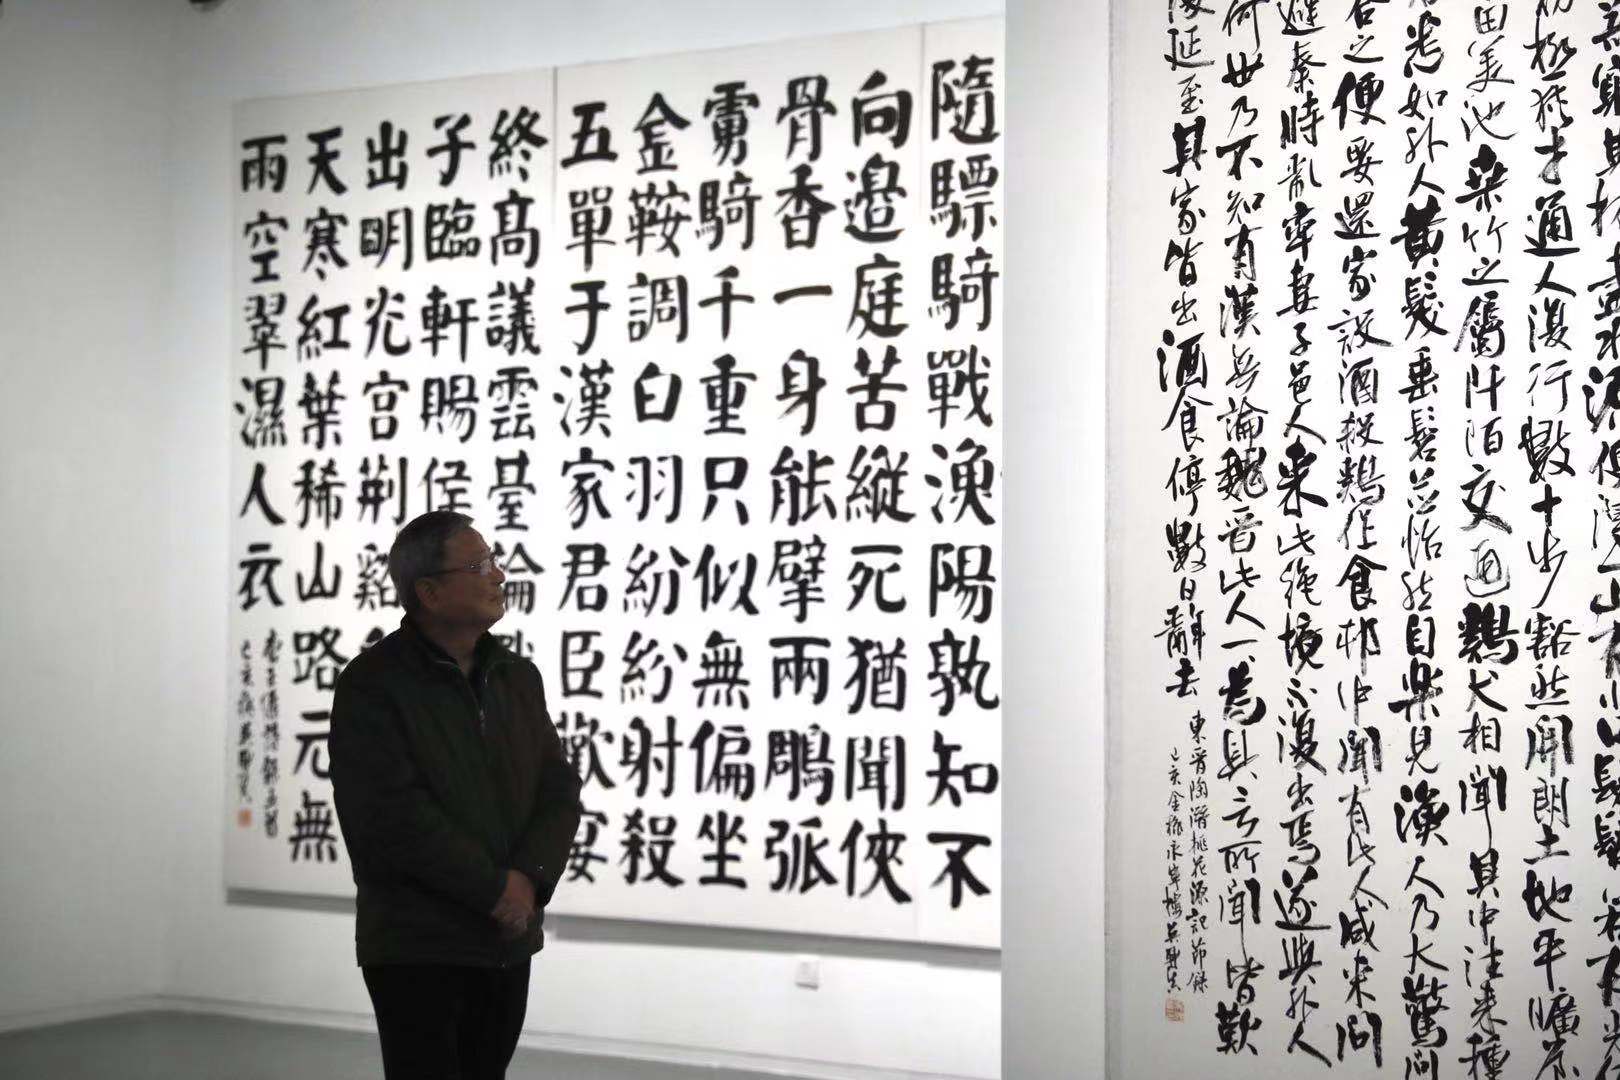 隨驃騎戰漁陽孰知不
向邊庭苦縱死猶聞俠
骨香一身能擘兩鵰弧
虜騎千重只似無偏坐
金鞍調白羽紛紛射殺
五單于漢家君臣歡宴
終高議雲臺論戰
子臨軒賜侯
出明光宮荆谿
天寒紅葉稀山路元無
雨空翠濕人衣
窮其林盡水源便得一山有小口髣髴若有光
初極狹才通人復行數十步豁然開朗土地平曠屋
田美池桑竹之屬阡陌交通鷄犬相聞其中往來種
悉如外人黃髮垂髫並怡然自樂見漁人乃大驚問
答之便要還家設酒殺鷄作食村中聞有此人咸來問
避秦時亂率妻子邑人來此絕境不復出焉遂與外人
何世乃不知有漢無論魏晉此人一一為具言所聞皆歎
復延至其家皆出酒食停數日辭去
東晉陶潛桃花源記節錄
己亥金秋永寧樓吳